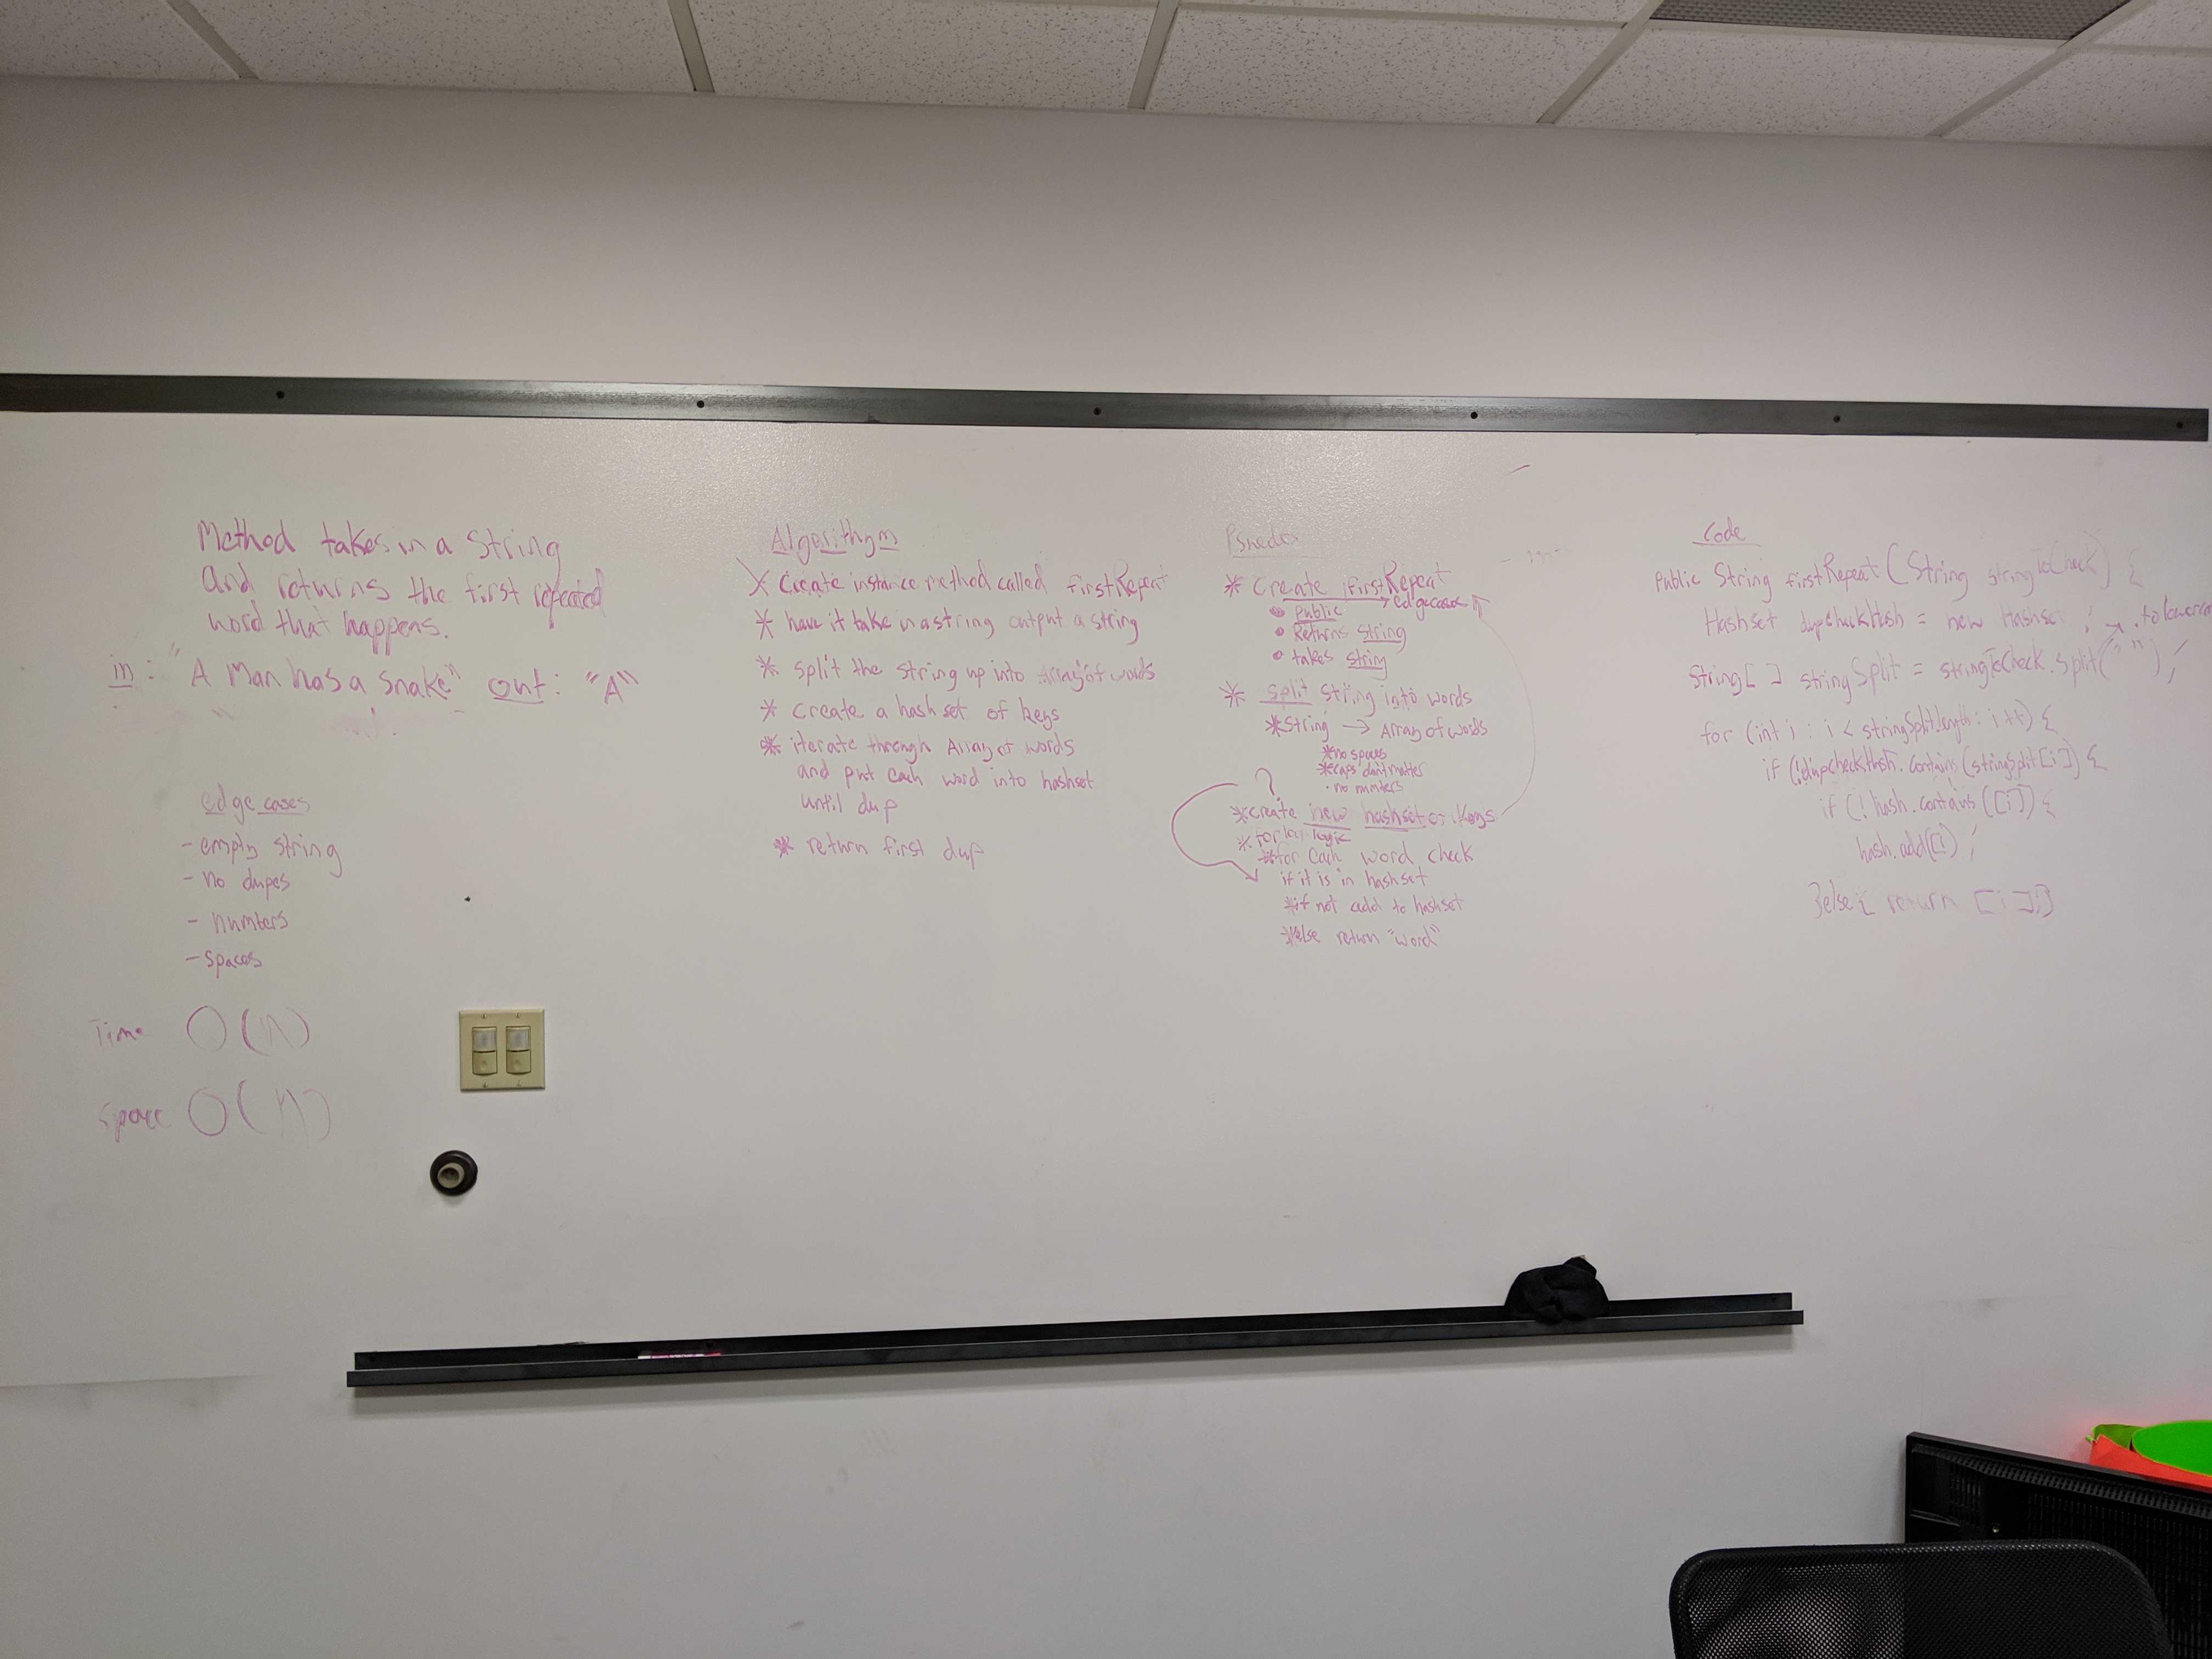 Method takes in a String
and returns the first repeated
word that happens.
in: "A Man has a snake" out: "A"
edge cases
- empty string
- no dupes
- numbers
- spaces
Time O(N)
Space O(N)
Algorithym
* Create instance method called firstRepeat
* have it take in a string output a string
* split the string up into Array of words
* create a hash set of keys
* iterate through Array of words
and put each word into hashset
until dup
* return first dup
Psuedo
* Create firstRepeat
→ edgecases
• Public
• Returns string
• takes string
* split string into words
* string → Array of words
* no spaces
* caps dont matter
• no numbers
?
* create new hashset of Keys
* for loop logic
* for each word check
if it is in hashset
* if not add to hashset
* else return "word"
Code
Public String firstRepeat (String stringToCheck) {
Hashset dupcheckHash = new Hashset ;
→ .tolowerca
String[ ] stringSplit = stringToCheck.split(" ");
for (int i : i < stringSplit.length : i++) {
if (!dupcheckHash.contains(stringSplit[i]) {
if (! hash.contains([i]) {
hash.add([i) ;
}else{ return [i];}